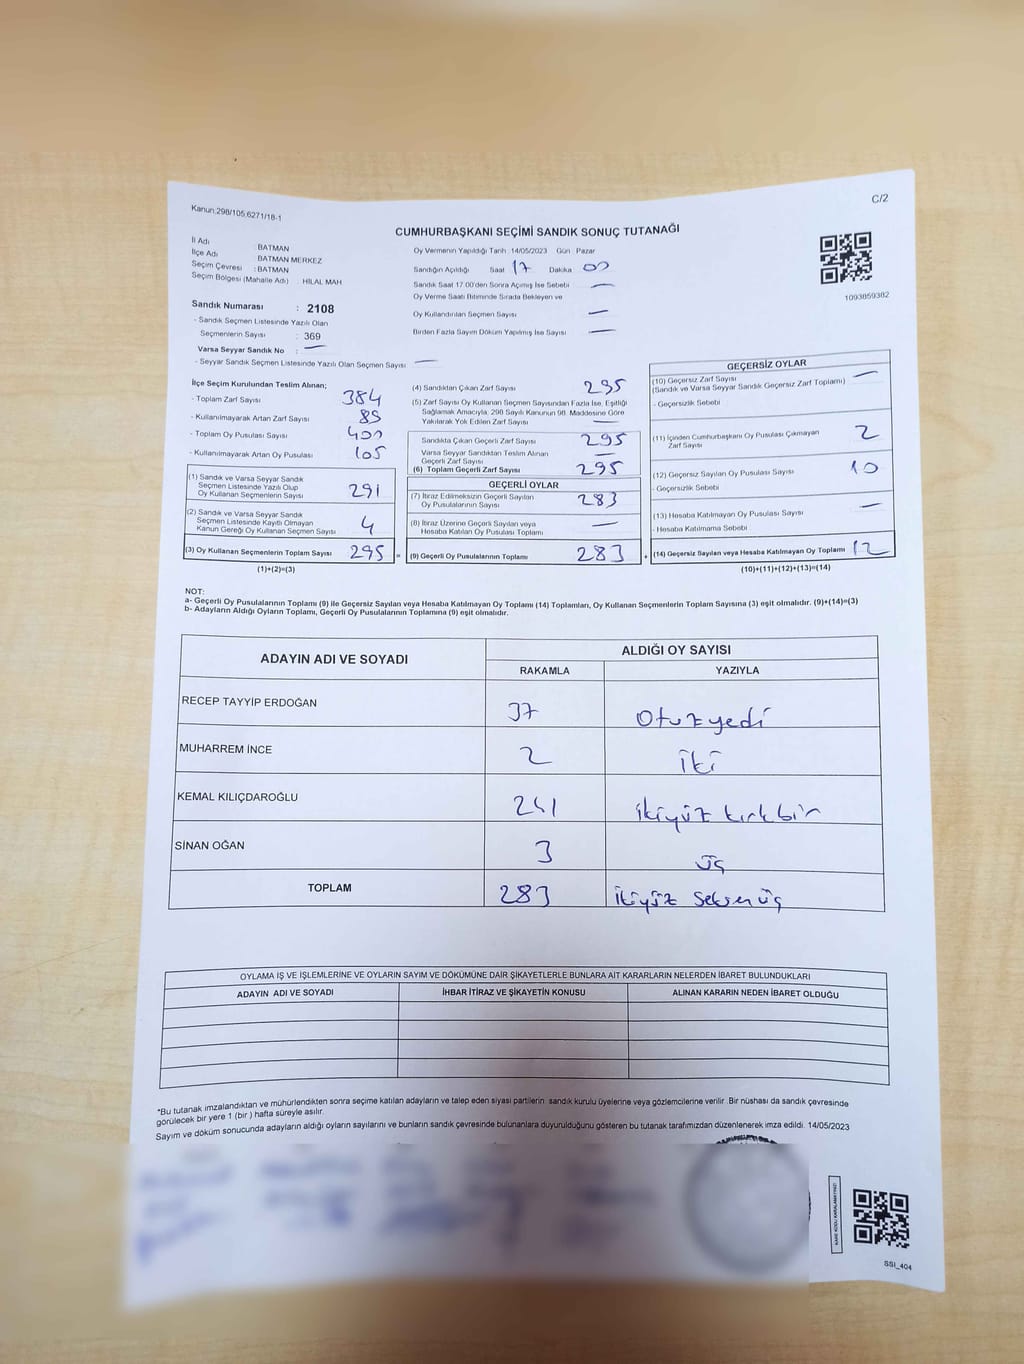 Kanun,298/105,6271/18-1
C/2
CUMHURBAŞKANI SEÇİMİ SANDIK SONUÇ TUTANAĞI
İl Adı : BATMAN
İlçe Adı : BATMAN MERKEZ
Seçim Çevresi : BATMAN
Seçim Bölgesi (Mahalle Adı) : HİLAL MAH
Sandık Numarası : 2108
- Sandık Seçmen Listesinde Yazılı Olan
Seçmenlerin Sayısı : 369
Varsa Seyyar Sandık No : —
- Seyyar Sandık Seçmen Listesinde Yazılı Olan Seçmen Sayısı —
Oy Vermenin Yapıldığı Tarih 14/05/2023 Gün Pazar
Sandığın Açıldığı Saat 17 Dakika 00
Sandık Saat 17.00'den Sonra Açılmış İse Sebebi —
Oy Verme Saati Bitiminde Sırada Bekleyen ve
Oy Kullandırılan Seçmen Sayısı —
Birden Fazla Sayım Döküm Yapılmış İse Sayısı —
1093859382
İlçe Seçim Kurulundan Teslim Alınan;
- Toplam Zarf Sayısı 384
- Kullanılmayarak Artan Zarf Sayısı 89
- Toplam Oy Pusulası Sayısı 400
- Kullanılmayarak Artan Oy Pusulası 105
(1) Sandık ve Varsa Seyyar Sandık
Seçmen Listesinde Yazılı Olup
Oy Kullanan Seçmenlerin Sayısı 291
(2) Sandık ve Varsa Seyyar Sandık
Seçmen Listesinde Kayıtlı Olmayan
Kanun Gereği Oy Kullanan Seçmen Sayısı 4
(3) Oy Kullanan Seçmenlerin Toplam Sayısı 295 =
(1)+(2)=(3)
(4) Sandıktan Çıkan Zarf Sayısı 295
(5) Zarf Sayısı Oy Kullanan Seçmen Sayısından Fazla İse, Eşitliği
Sağlamak Amacıyla, 298 Sayılı Kanunun 98. Maddesine Göre
Yakılarak Yok Edilen Zarf Sayısı —
Sandıkta Çıkan Geçerli Zarf Sayısı 295
Varsa Seyyar Sandıktan Teslim Alınan
Geçerli Zarf Sayısı —
(6) Toplam Geçerli Zarf Sayısı 295
GEÇERLİ OYLAR
(7) İtiraz Edilmeksizin Geçerli Sayılan
Oy Pusulalarının Sayısı 283
(8) İtiraz Üzerine Geçerli Sayılan veya
Hesaba Katılan Oy Pusulası Toplamı —
(9) Geçerli Oy Pusulalarının Toplamı 283 +
GEÇERSİZ OYLAR
(10) Geçersiz Zarf Sayısı —
(Sandık ve Varsa Seyyar Sandık Geçersiz Zarf Toplamı)
- Geçersizlik Sebebi
(11) İçinden Cumhurbaşkanı Oy Pusulası Çıkmayan
Zarf Sayısı 2
(12) Geçersiz Sayılan Oy Pusulası Sayısı 10
- Geçersizlik Sebebi
(13) Hesaba Katılmayan Oy Pusulası Sayısı —
- Hesaba Katılmama Sebebi
(14) Geçersiz Sayılan veya Hesaba Katılmayan Oy Toplamı 12
(10)+(11)+(12)+(13)=(14)
NOT:
a- Geçerli Oy Pusulalarının Toplamı (9) ile Geçersiz Sayılan veya Hesaba Katılmayan Oy Toplamı (14) Toplamları, Oy Kullanan Seçmenlerin Toplam Sayısına (3) eşit olmalıdır. (9)+(14)=(3)
b- Adayların Aldığı Oyların Toplamı, Geçerli Oy Pusulalarının Toplamına (9) eşit olmalıdır.
ADAYIN ADI VE SOYADI
ALDIĞI OY SAYISI
RAKAMLA YAZIYLA
RECEP TAYYİP ERDOĞAN 37 otuzyedi
MUHARREM İNCE 2 iki
KEMAL KILIÇDAROĞLU 241 ikiyüz kırkbir
SİNAN OĞAN 3 üç
TOPLAM 283 ikiyüz seksenüç
OYLAMA İŞ VE İŞLEMLERİNE VE OYLARIN SAYIM VE DÖKÜMÜNE DAİR ŞİKAYETLERLE BUNLARA AİT KARARLARIN NELERDEN İBARET BULUNDUKLARI
ADAYIN ADI VE SOYADI İHBAR İTİRAZ VE ŞİKAYETİN KONUSU ALINAN KARARIN NEDEN İBARET OLDUĞU
*Bu tutanak imzalandıktan ve mühürlendikten sonra seçime katılan adayların ve talep eden siyasi partilerin sandık kurulu üyelerine veya gözlemcilerine verilir. Bir nüshası da sandık çevresinde
görülecek bir yere 1 (bir) hafta süreyle asılır.
Sayım ve döküm sonucunda adayların aldığı oyların sayılarını ve bunların sandık çevresinde bulunanlara duyurulduğunu gösteren bu tutanak tarafımızdan düzenlenerek imza edildi. 14/05/2023
KARE KODU KARALAMAYINIZ!
SSI_404